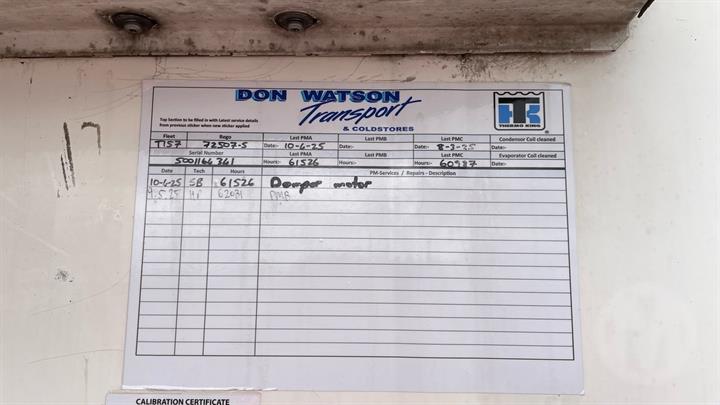 DON WATSON
Transport
& COLDSTORES
Top Section to be filled in with Latest service details
from previous sticker when new sticker applied
THERMO KING
Fleet Rego Last PMA Last PMB Last PMC Condensor Coil cleaned
T157 72507-S Date:- 10-4-25 Date:- Date:- 8-3-25 Date:-
Serial Number Last PMA Last PMB Last PMC Evaporator Coil cleaned
5001164361 Hours:- 61526 Hours:- Hours:- 60987 Date:-
Date Tech Hours PM-Services / Repairs - Description
10-4-25 SB 61526 Damper motor
.5.25 62031 PMB
CALIBRATION CERTIFICATE